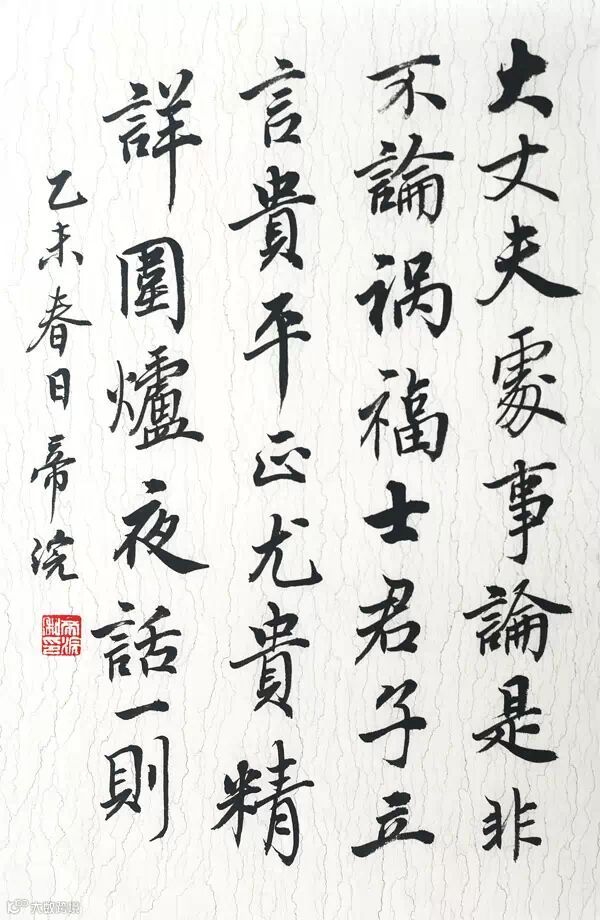 大丈夫處事論是非
不論禍福士君子立
言貴平正尤貴精
詳圍爐夜話一則
乙未春日帝浣